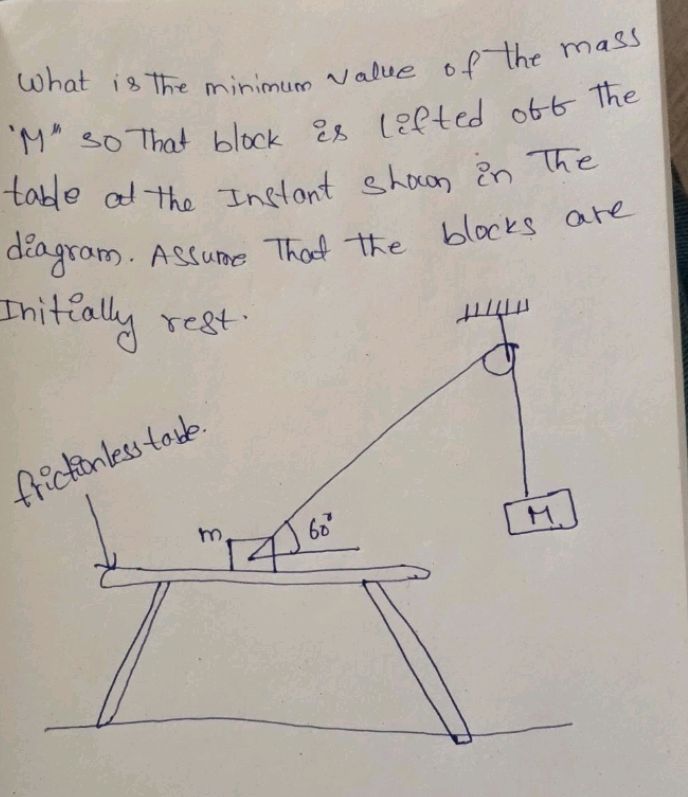 What is The minimum value of the mass
"M" so That block is lifted off the
table at the Instant shown in The
diagram. Assume That the blocks are
Initially rest.
frictionless table.
m
60°
M